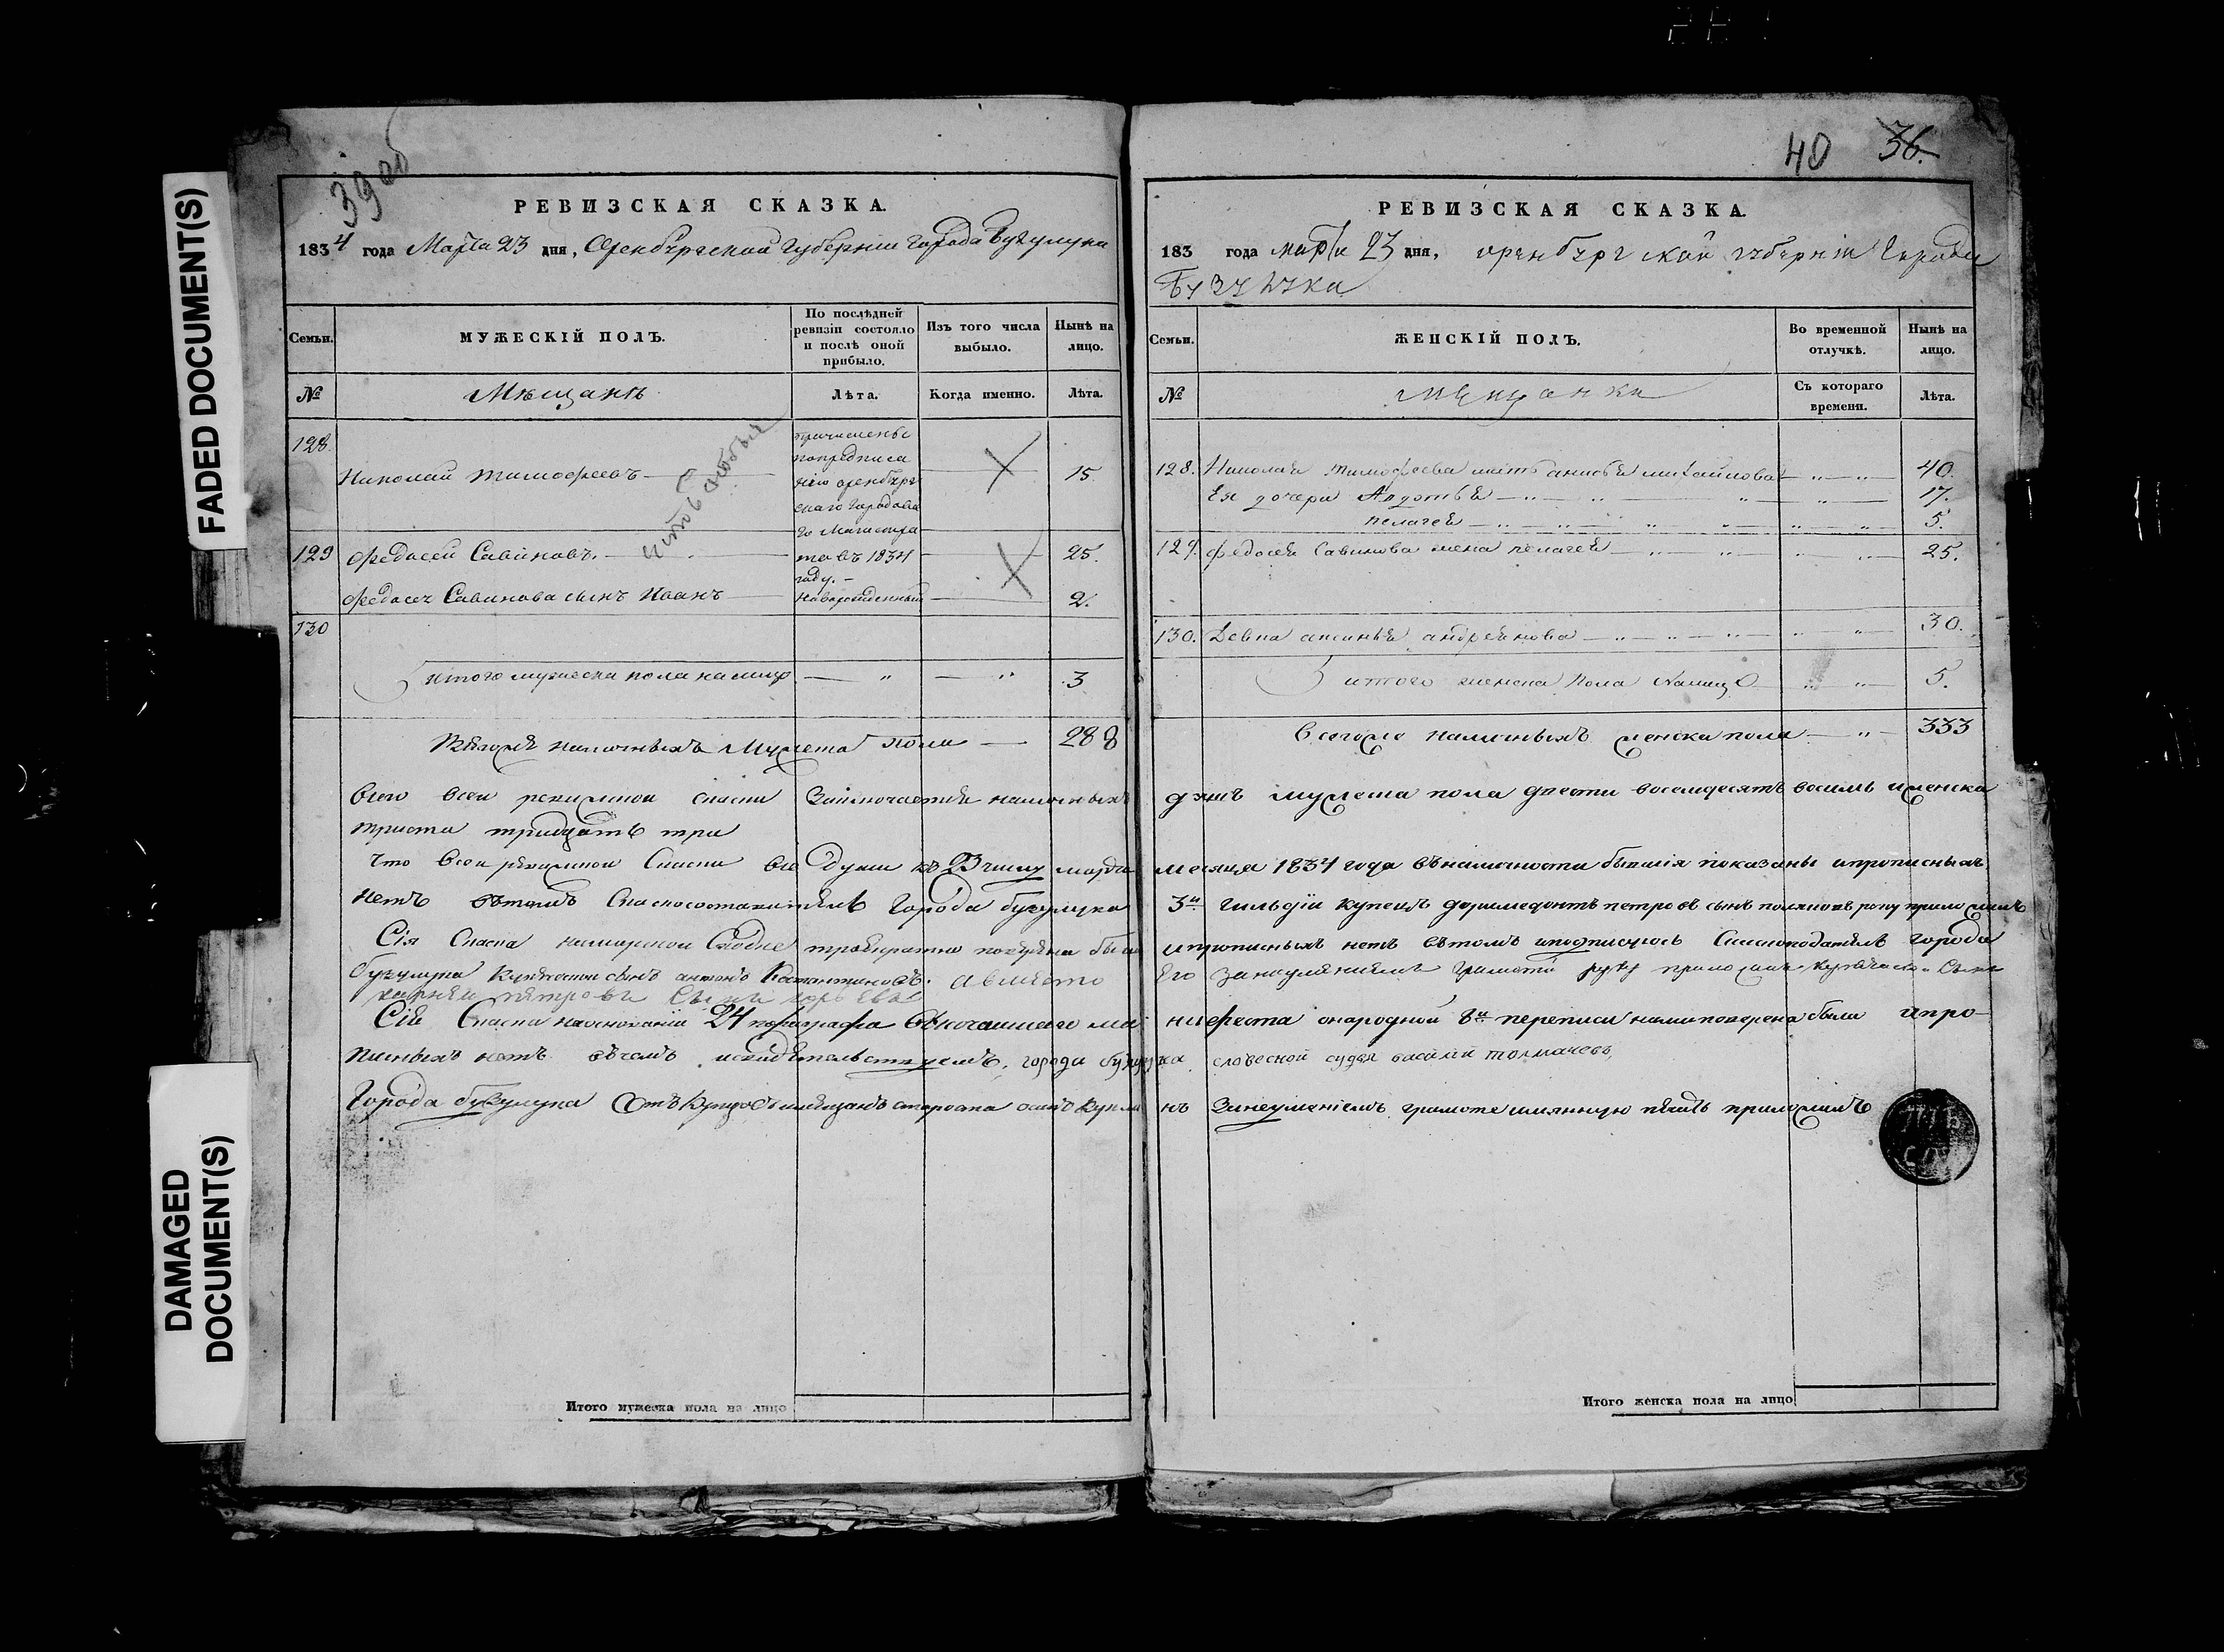 FADED DOCUMENT(S)
DAMAGED DOCUMENT(S)
39об
РЕВИЗСКАЯ СКАЗКА.
1834 года Марта 23 дня, Оренбургской губернiи города Бузулука
Семьи.
МУЖЕСКIЙ ПОЛЪ.
По послѣдней ревизiи состояло и послѣ оной прибыло.
Изъ того числа выбыло.
Нынѣ на лицо.
№
Мѣщанѣ
Лѣта.
Когда именно.
Лѣта.
128.
причислены
попредписа
нiю оренбург
скаго городова
го Магистра
та въ 1834
году. –
Николай тимофеевъ
15.
129 Федосей Савиновъ.
25.
Федосея Савинова сынъ Иванъ новорожденный
2.
130
итого мужеска пола налицо
3
Всегоже наличныхъ Мужеска пола
288
40 36.
РЕВИЗСКАЯ СКАЗКА.
183 года марта 23 дня, оренбургской губернiи Города
Бузулука
Семьи.
ЖЕНСКIЙ ПОЛЪ.
Во временной отлучкѣ.
Нынѣ на лицо.
№
Мѣщанки
Съ котораго времени.
Лѣта.
128. Николая тимофеева мать анисья михайлова 40.
Ея дочери Авдотья 17.
пелагея 5.
129. федосея Савинова жена пелагея 25.
130. Девка аксинья андреянова 30.
итого женска пола налицо 5.
Всегоже наличныхъ женска пола 333
Всего всей ревижской скаски заключается наличныхъ душъ мужеска пола двести восемдесятъ восимь иженска
триста тридцать три
Что Всей ревижской Скаски все души къ 23 числу марта месяца 1834 года въналичности бывшiя показаны ипрописныхъ
нетъ вътомъ Скаскосоставитель Города бузулука 3й гильдiи купецъ доримедонтъ петровъ сынъ руку приложилъ
Сiя Скаска троекратно поверяна была ипрописныхъ нетъ вътомъ иподписуюсь Скаскоподатель города
бузулука Купеческой сынъ антонъ Костантиновъ. авместо Его занеумениемъ грамоти руку приложилъ купеческой Сынъ
Сiя Скаска наосновании 24 параграфа Высочаишаго манифеста онародной 8й переписи нами поверена была ипро-
писныхъ нетъ вчемъ исвидетельствуемъ. города бузулука словесной судья василiй толмачевъ,
Города бузулука Отъ Купцовъ имещанъ староста Занеумениемъ грамоте имянную печать приложилъ
Итого мужеска пола на лицо
Итого женска пола на лицо